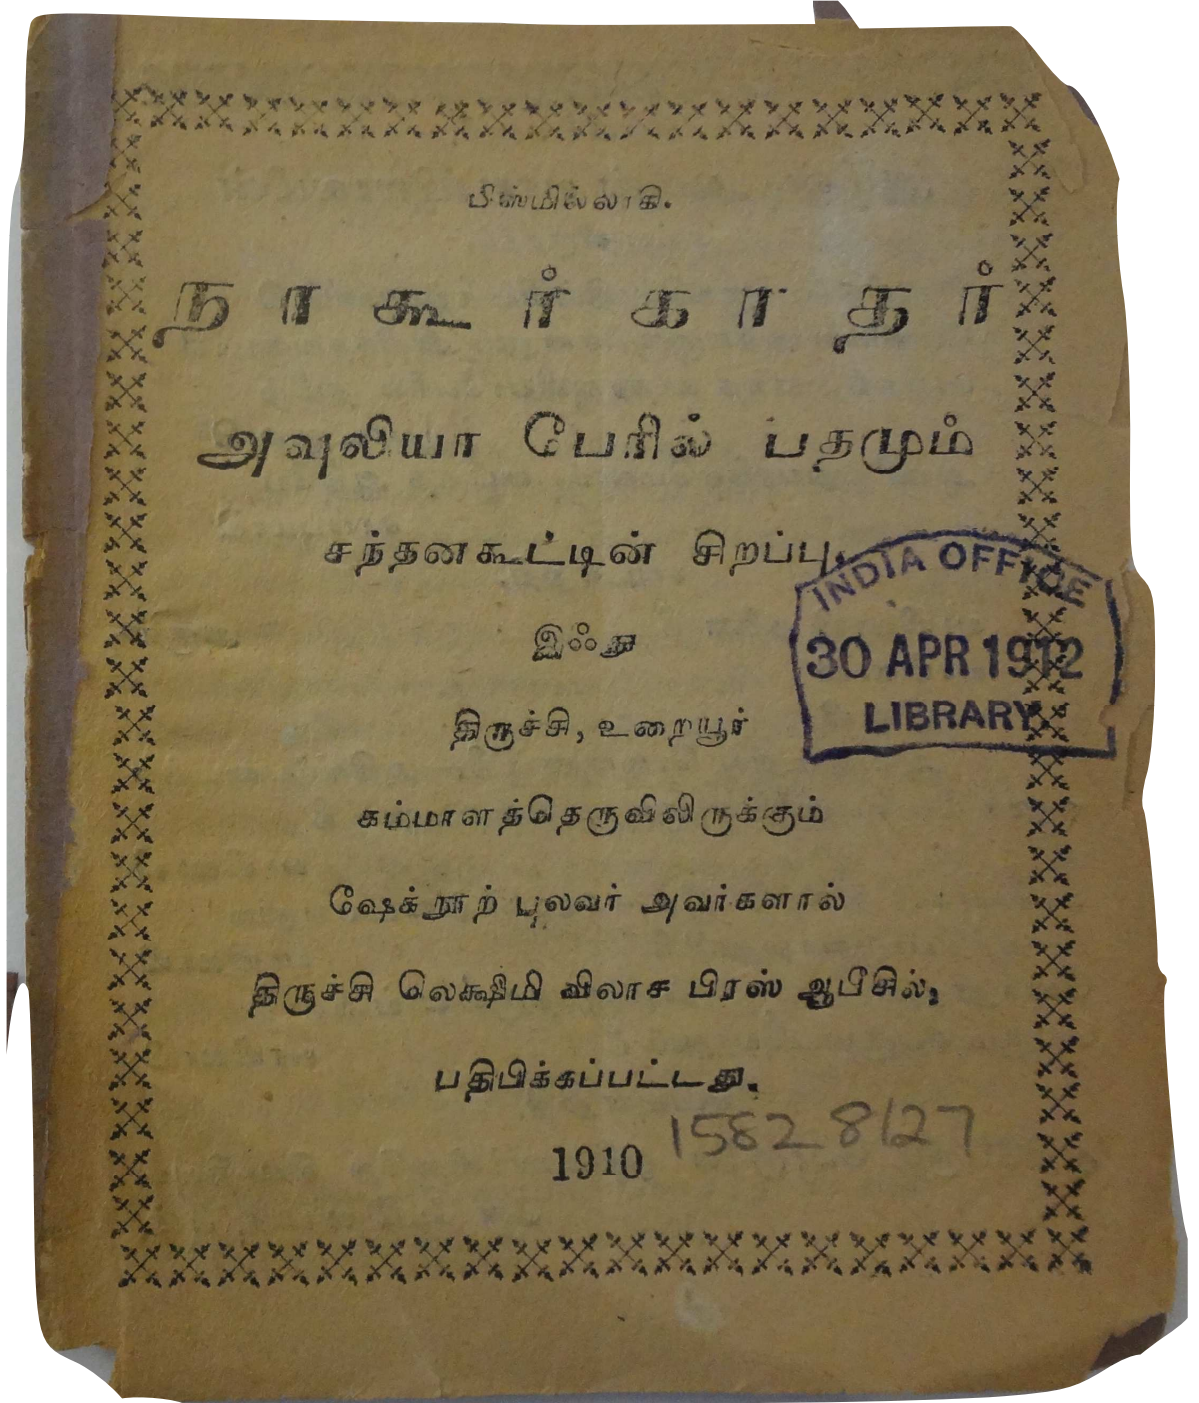 பிஸ்மில்லாகி.
நாகூர்காதர்
அவுலியா பேரில் பதமும்
சந்தனகூட்டின் சிறப்பு.
இஃது
திருச்சி, உறையூர்
கம்மாளத்தெருவிலிருக்கும்
ஷேக்நூற் புலவர் அவர்களால்
திருச்சி லெக்ஷிமி விலாச பிரஸ் ஆபீசில்,
பதிபிக்கப்பட்டது.
1910
INDIA OFFICE
30 APR 1912
LIBRARY
1582 8127